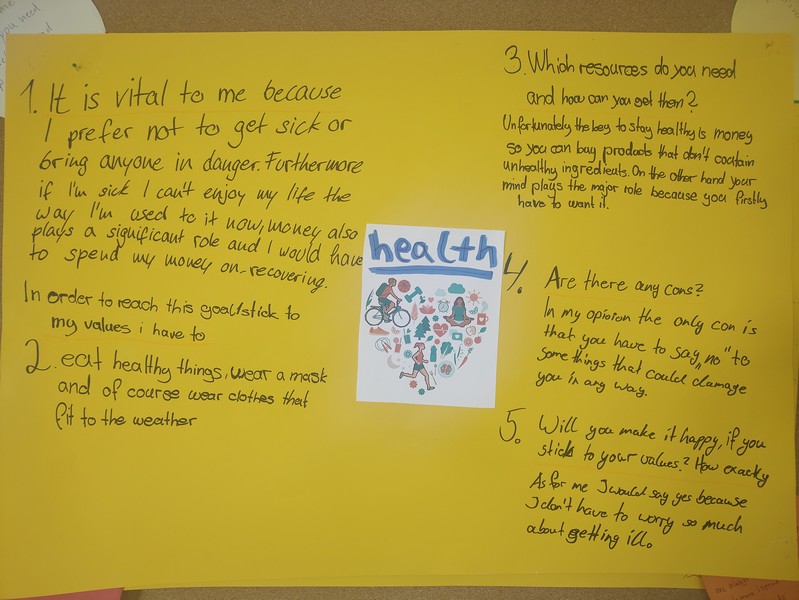 1. It is vital to me because
I prefer not to get sick or
bring anyone in danger. Furthermore
if I'm sick I can't enjoy my life the
way I'm used to it now, money also
plays a significant role and I would have
to spend my money on recovering.
In order to reach this goal/stick to
my values i have to
2. eat healthy things, wear a mask
and of course wear clothes that
fit to the weather
health
3. Which resources do you need
and how can you get them?
Unfortunately the key to stay healthy is money
so you can buy products that don't contain
unhealthy ingredients. On the other hand your
mind plays the major role because you firstly
have to want it.
4. Are there any cons?
In my opinion the only con is
that you have to say „no" to
some things that could damage
you in any way.
5. Will you make it happy, if you
stick to your values? How exactly
As for me I would say yes because
I don't have to worry so much
about getting ill.
you need